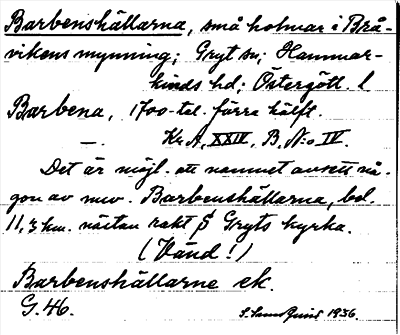 Barbenshällarna, små holmar i Brå-
vikens mynning; Gryt sn; Hammar-
kinds hd; Östergötl. l
Barbena, 1700-tal. förra hälft.
—. Kr. A, XXIV, B, N:o IV.
Det är möjl. att namnet avsett nå-
gon av nuv. Barbenshällarna, bel.
11,3 km. nästan rakt S Gryts kyrka.
(Vänd!)
Barbenshällarne ek.
G. 46.
1936